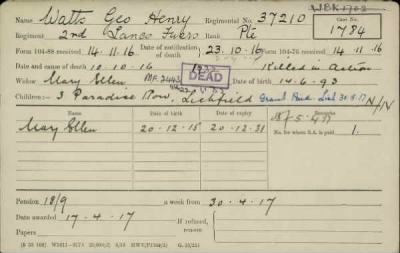 WBK1702
Name Watts Geo Henry Regimental No. 37210 Case No. 1784
Regiment 2nd Lancs Fusrs Rank Pte
Form 104-88 received 14-11-16 Date of notification of death 23.10.16 Form 104-76 received 14.11.16
Date and cause of death 10-10-16 Killed in Action
Widow Mary Ellen DEAD Date of birth 14.6.93
Children:— 3 Paradise Row, Lichfield
Name. Date of birth Date of expiry
Mary Ellen 20-12-15 20-12-31 No. for whom S.A. is paid 1.
Pension 18/9 a week from 30.4.17
Date awarded 17-4-17 If refused, reason
Papers